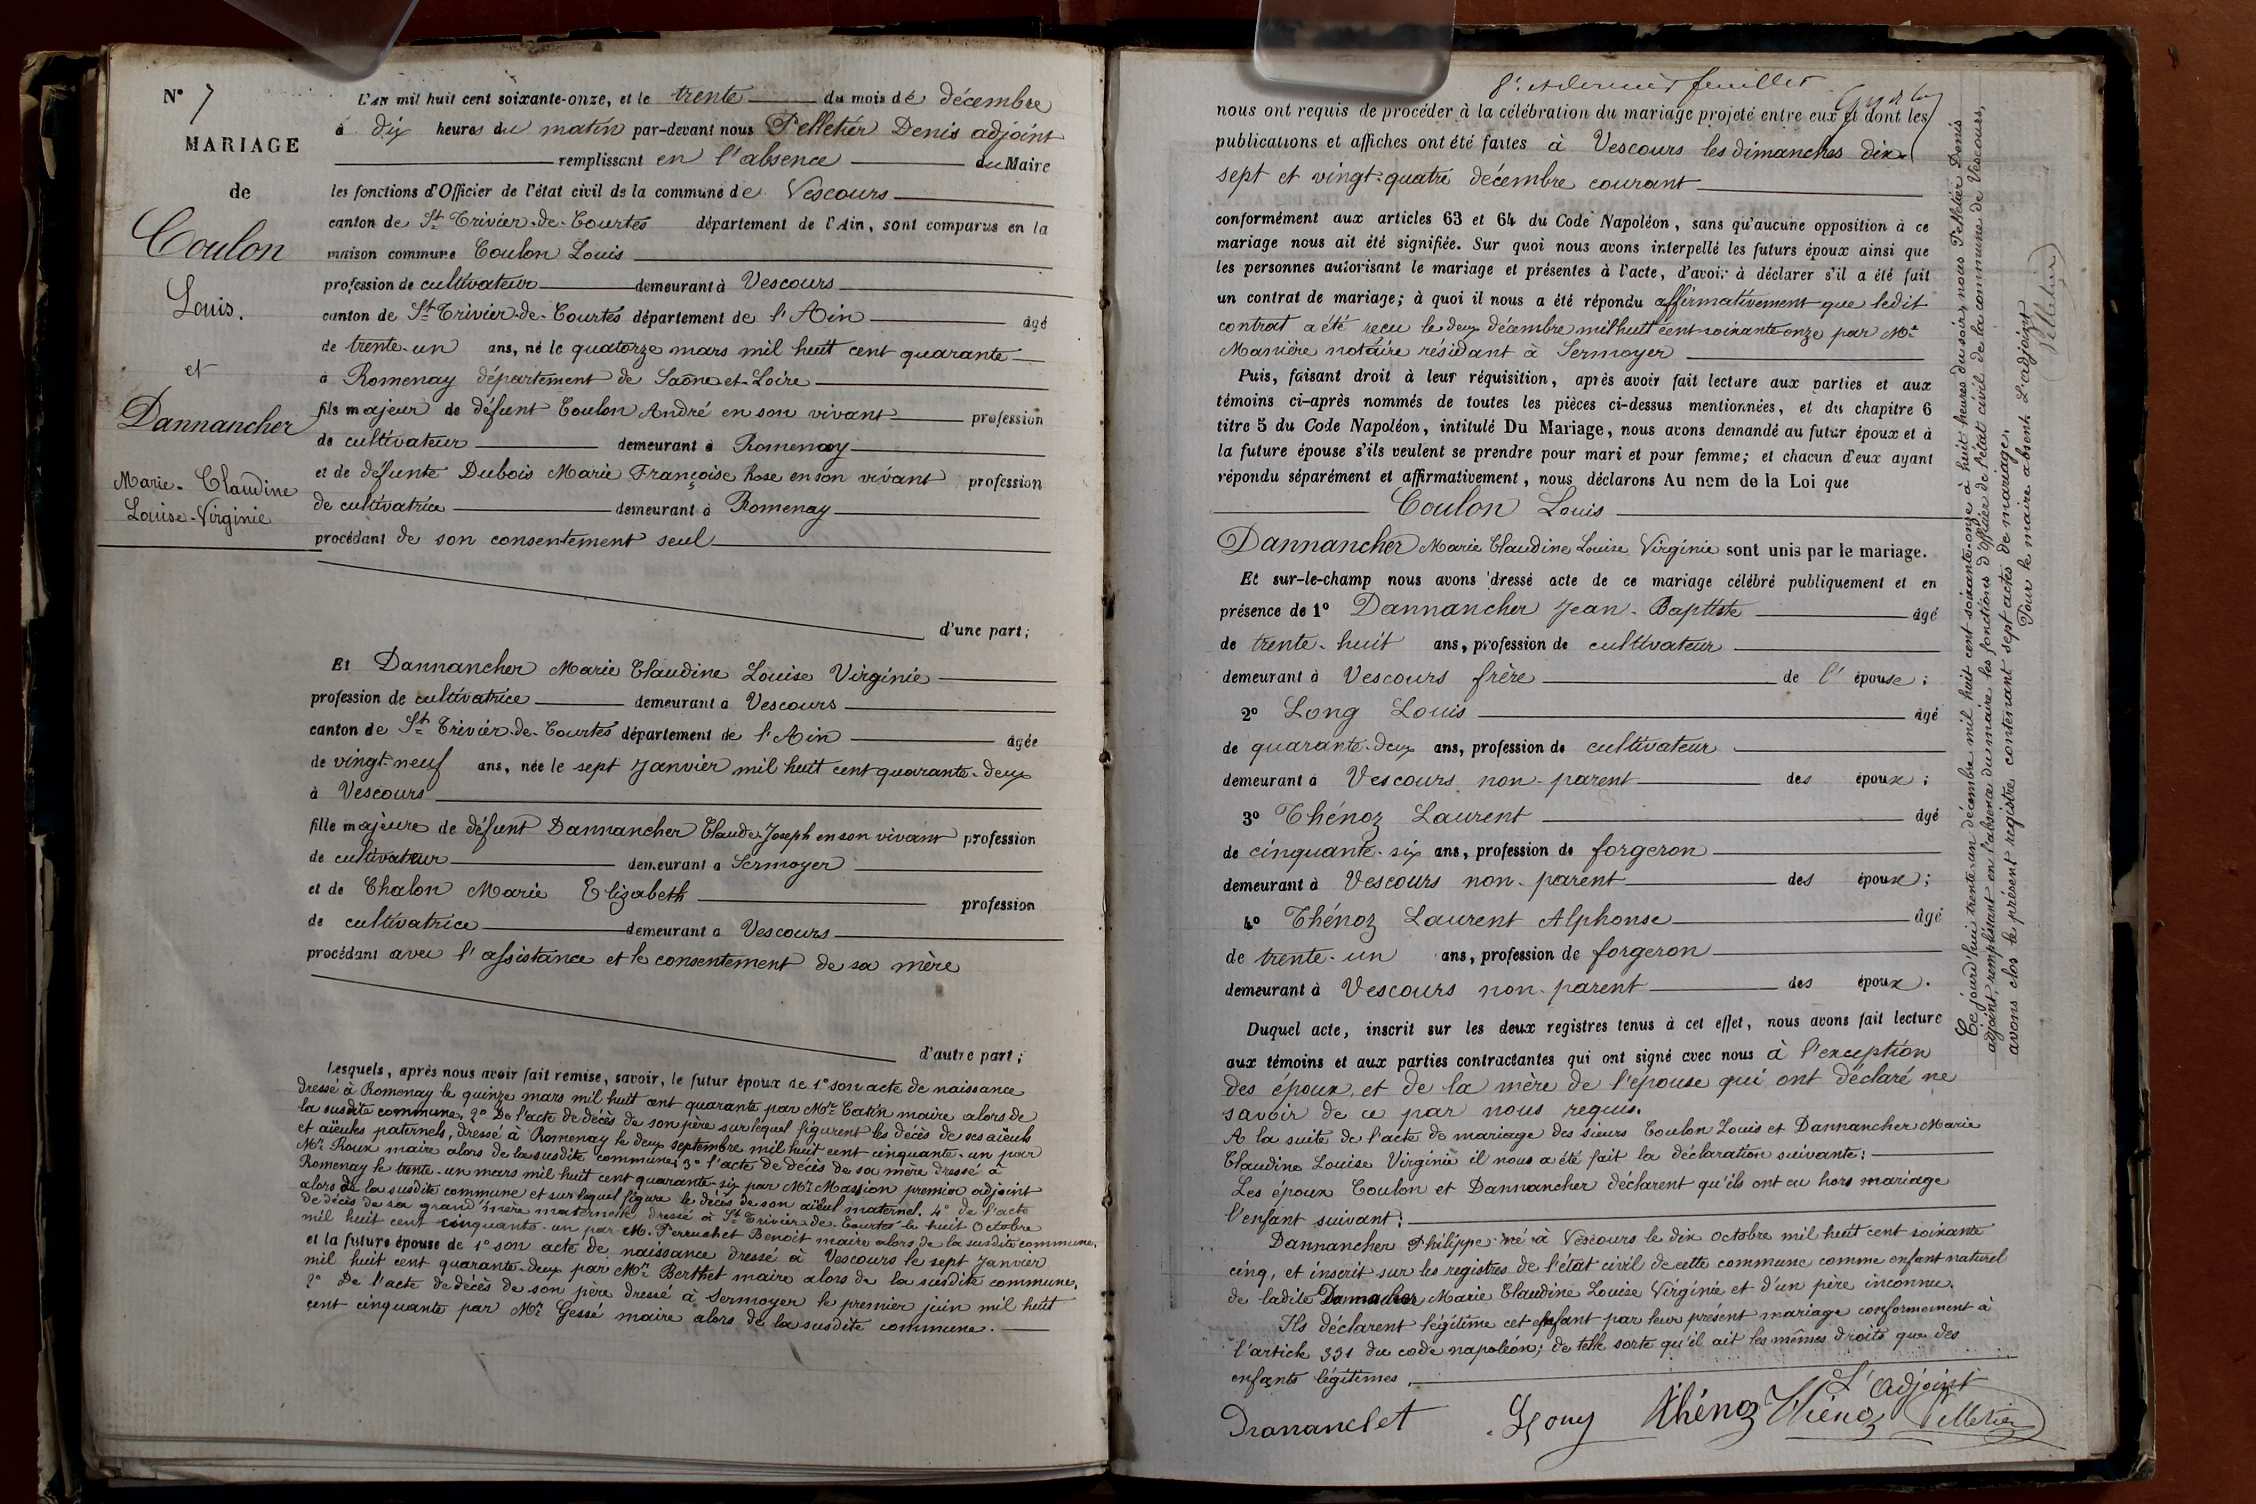 N° 7
MARIAGE
de
Coulon
Louis.
et
Dannancher
Marie-Claudine
Louise-Virginie
L'an mil huit cent soixante-onze, et le trente du mois de décembre
à dix heures du matin par-devant nous Pelletier Denis adjoint
remplissant en l'absence du Maire
les fonctions d'Officier de l'état civil de la commune de Vescours
canton de St Trivier-de-Courtes département de l'Ain, sont comparus en la
maison commune Coulon Louis
profession de cultivateur demeurant à Vescours
canton de St Trivier-de-Courtes département de l'Ain âgé
de trente-un ans, né le quatorze mars mil huit cent quarante
à Romenay département de Saône-et-Loire
fils majeur de défunt Coulon André en son vivant profession
de cultivateur demeurant à Romenay
et de défunte Dubois Marie Françoise Rose en son vivant profession
de cultivatrice demeurant à Romenay
procédant de son consentement seul
d'une part;
Et Dannancher Marie Claudine Louise Virginie
profession de cultivatrice demeurant à Vescours
canton de St Trivier-de-Courtes département de l'Ain âgée
de vingt-neuf ans, née le sept Janvier mil huit cent quarante-deux
à Vescours
fille majeure de défunt Dannancher Claude-Joseph en son vivant profession
de cultivateur demeurant à Sermoyer
et de Chalon Marie Elizabeth profession
de cultivatrice demeurant à Vescours
procédant avec l'assistance et le consentement de sa mère
d'autre part;
Lesquels, après nous avoir fait remise, savoir, le futur époux de 1° son acte de naissance
dressé à Romenay le quinze mars mil huit cent quarante par Mr Catin maire alors de
la susdite commune, 2° De l'acte de décès de son père sur lequel figurent les décès de ses aïeuls
et aïeules paternels, dressé à Romenay le deux septembre mil huit cent cinquante-un par
Mr Roux maire alors de la susdite commune; 3° l'acte de décès de sa mère dressé à
Romenay le trente-un mars mil huit cent quarante-six par Mr Massion premier adjoint
alors de la susdite commune et sur lequel figure le décès de son aïeul maternel. 4° de l'acte
de décès de sa grand'mère maternelle dressé à St Trivier-de-Courtes le huit Octobre
mil huit cent cinquante-un par M. Perruchet Benoit maire alors de la susdite commune,
et la future épouse de 1° son acte de naissance dressé à Vescours le sept Janvier
mil huit cent quarante-deux par Mr Berthet maire alors de la susdite commune,
2° De l'acte de décès de son père dressé à Sermoyer le premier juin mil huit
cent cinquante par Mr Gessé maire alors de la susdite commune.
8e et dernier feuillet
nous ont requis de procéder à la célébration du mariage projeté entre eux et dont les
publications et affiches ont été faites à Vescours les dimanches dix-
sept et vingt-quatre décembre courant
conformément aux articles 63 et 64 du Code Napoléon, sans qu'aucune opposition à ce
mariage nous ait été signifiée. Sur quoi nous avons interpellé les futurs époux ainsi que
les personnes autorisant le mariage et présentes à l'acte, d'avoir à déclarer s'il a été fait
un contrat de mariage; à quoi il nous a été répondu affirmativement que ledit
contrat a été reçu le deux décembre mil huit cent soixante onze par Me
Manière notaire résidant à Sermoyer
Puis, faisant droit à leur réquisition, après avoir fait lecture aux parties et aux
témoins ci-après nommés de toutes les pièces ci-dessus mentionnées, et du chapitre 6
titre 5 du Code Napoléon, intitulé Du Mariage, nous avons demandé au futur époux et à
la future épouse s'ils veulent se prendre pour mari et pour femme; et chacun d'eux ayant
répondu séparément et affirmativement, nous déclarons Au nom de la Loi que
Coulon Louis
Dannancher Marie Claudine Louise Virginie sont unis par le mariage.
Et sur-le-champ nous avons dressé acte de ce mariage célébré publiquement et en
présence de 1° Dannancher Jean-Baptiste âgé
de trente-huit ans, profession de cultivateur
demeurant à Vescours frère de l'épouse;
2° Long Louis âgé
de quarante-deux ans, profession de cultivateur
demeurant à Vescours non-parent des époux;
3° Thénoz Laurent âgé
de cinquante-six ans, profession de forgeron
demeurant à Vescours non-parent des époux;
4° Thénoz Laurent Alphonse âgé
de trente-un ans, profession de forgeron
demeurant à Vescours non-parent des époux.
Duquel acte, inscrit sur les deux registres tenus à cet effet, nous avons fait lecture
aux témoins et aux parties contractantes qui ont signé avec nous à l'exception
des époux et de la mère de l'épouse qui ont déclaré ne
savoir de ce par nous requis.
A la suite de l'acte de mariage des sieurs Coulon Louis et Dannancher Marie
Claudine Louise Virginie il nous a été fait la déclaration suivante:
Les époux Coulon et Dannancher déclarent qu'ils ont eu hors mariage
l'enfant suivant:
Dannancher Philippe né à Vescours le dix octobre mil huit cent soixante
cinq, et inscrit sur les registres de l'état civil de cette commune comme enfant naturel
de ladite Dannancher Marie Claudine Louise Virginie et d'un père inconnu.
Ils déclarent légitime cet enfant par leur présent mariage conformement à
l'article 331 du code napoléon; de telle sorte qu'il ait les mêmes droits que des
enfants légitimes.
L'Adjoint
Long Thénoz Thénoz Pelletier
Ce jourd'hui trente-un décembre mil huit cent soixante-onze à huit heures du soir, nous Pelletier Denis
adjoint, remplissant en l'absence du maire les fonctions d'officier de l'état civil de la commune de Vescours,
avons clos le présent registre contenant sept actes de mariage.
Pour le maire absent L'adjoint
Pelletier